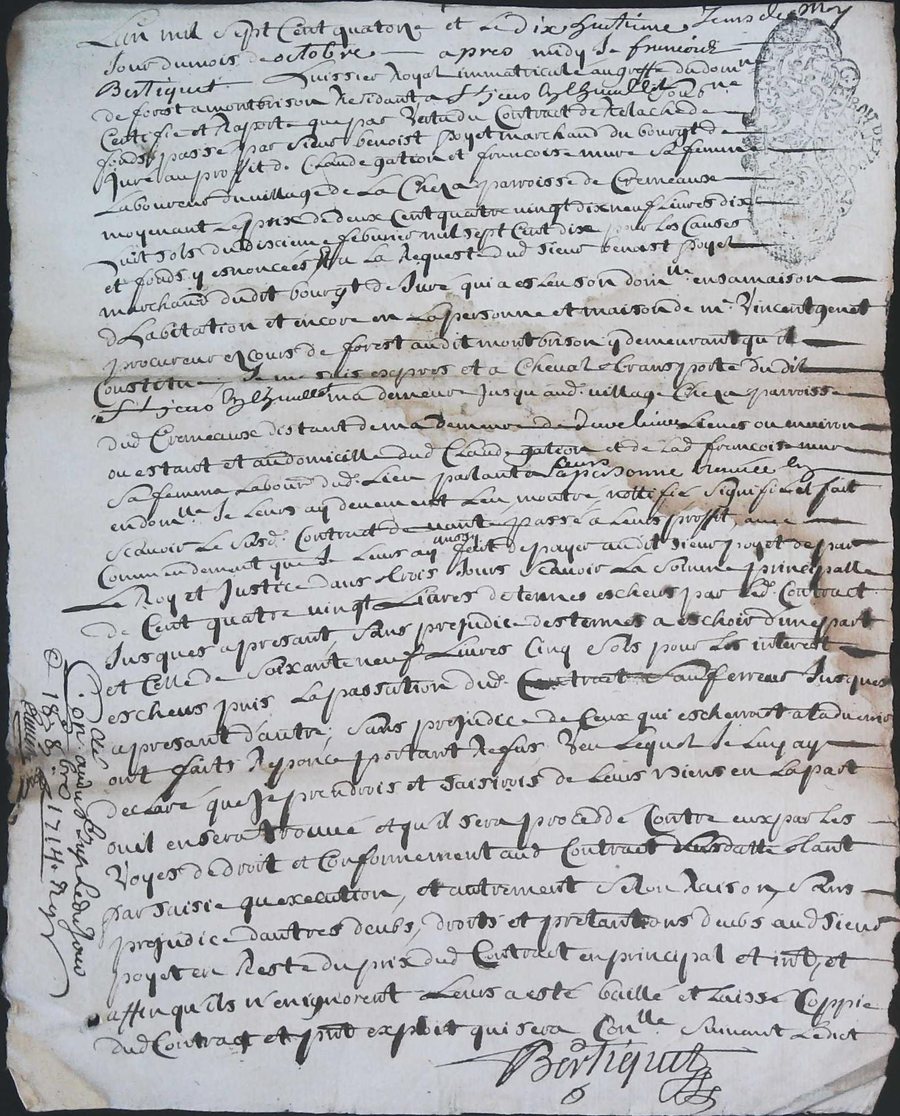 L'an mil sept Cent quatorze et le dix huitieme Jour de
Jour du mois de octobre apres midy Je francois
Bertiquet huissier Royal immatriculé au greffe du dom.ne
de forest a montbrison Residant a St
Certifie et Raporte que par Vertu du Contract de Relache de
fonds passé par sieur benoist poyet marchand du bourgt de
Jure au proffit de Claude gation et francoise mure sa femme
Laboureur du village de La Cheza parroisse de Cremeaux
moyenant Le prix de deux Cent quatre vingt dix neuf Livres dix
huit sols du febvrier mil sept Cent dix pour les Causes
et fonds y esnoncées a La Requeste dud sieur benoist poyet
marchand dudit bourgt de Jure qui a esleu son domlle en sa maison
d habitation et encore en La personne et maison de me Vincent genet
procureur es Cours de forest audit montbrison y demeurant qu il
Constitue Je me suis expres et a Cheval transporté dudit
St ma demeure Jusqu aud village Cheza parroisse
dud Cremeaux distant de ma demeure de Lieues ou environ
ou estant et au domicille dud Claude gation et de Lad francoise mure
sa femme Labourr dud Lieu parlant a Leurs personne
en domlle Je Leurs ay deuement Leu montré nottifié signifié et fait
scavoir Le susd Contract de passé a Leurs proffit, avec
Commendement que Je Leurs ay aussy fait de payer audit sieur poyet de par
Le Roy et Justice dans trois Jours scavoir La somme principalle
de Cent quatre vingt Livres de termes escheus par led Contract
Jusques apresant sans prejudice des termes a eschoir d une part
et Celle de soixante neuf Livres Cinq sols pour Les interest
escheus puis La passation dud Contract Jusques
apresant d'autre, sans prejudice de Ceux qui escherront a Ladvenir
ont faits Reponce portant Refus Veu Lequel Je Luy ay
declaré que Je prendrois et saisirois de Leurs biens en La part
ou il en sera trouvé et qu il sera procedde Contre eux par Les
Voyes de droit et Conformement aud Contract
par saisie qu execution, et autrement selon Raison, sans
prejudice d autres deubs, droits et pretantions deubs aud sieur
poyet en Reste du prix dud Contract en principal et int, et
affin qu ils n en ignorent Leurs a esté baillé et Laissé Coppie
dud Contract et pnt exploit qui sera Conlle suivant Ledict
Bertiquet
Con
Le dit Jour
18 8bre 1714